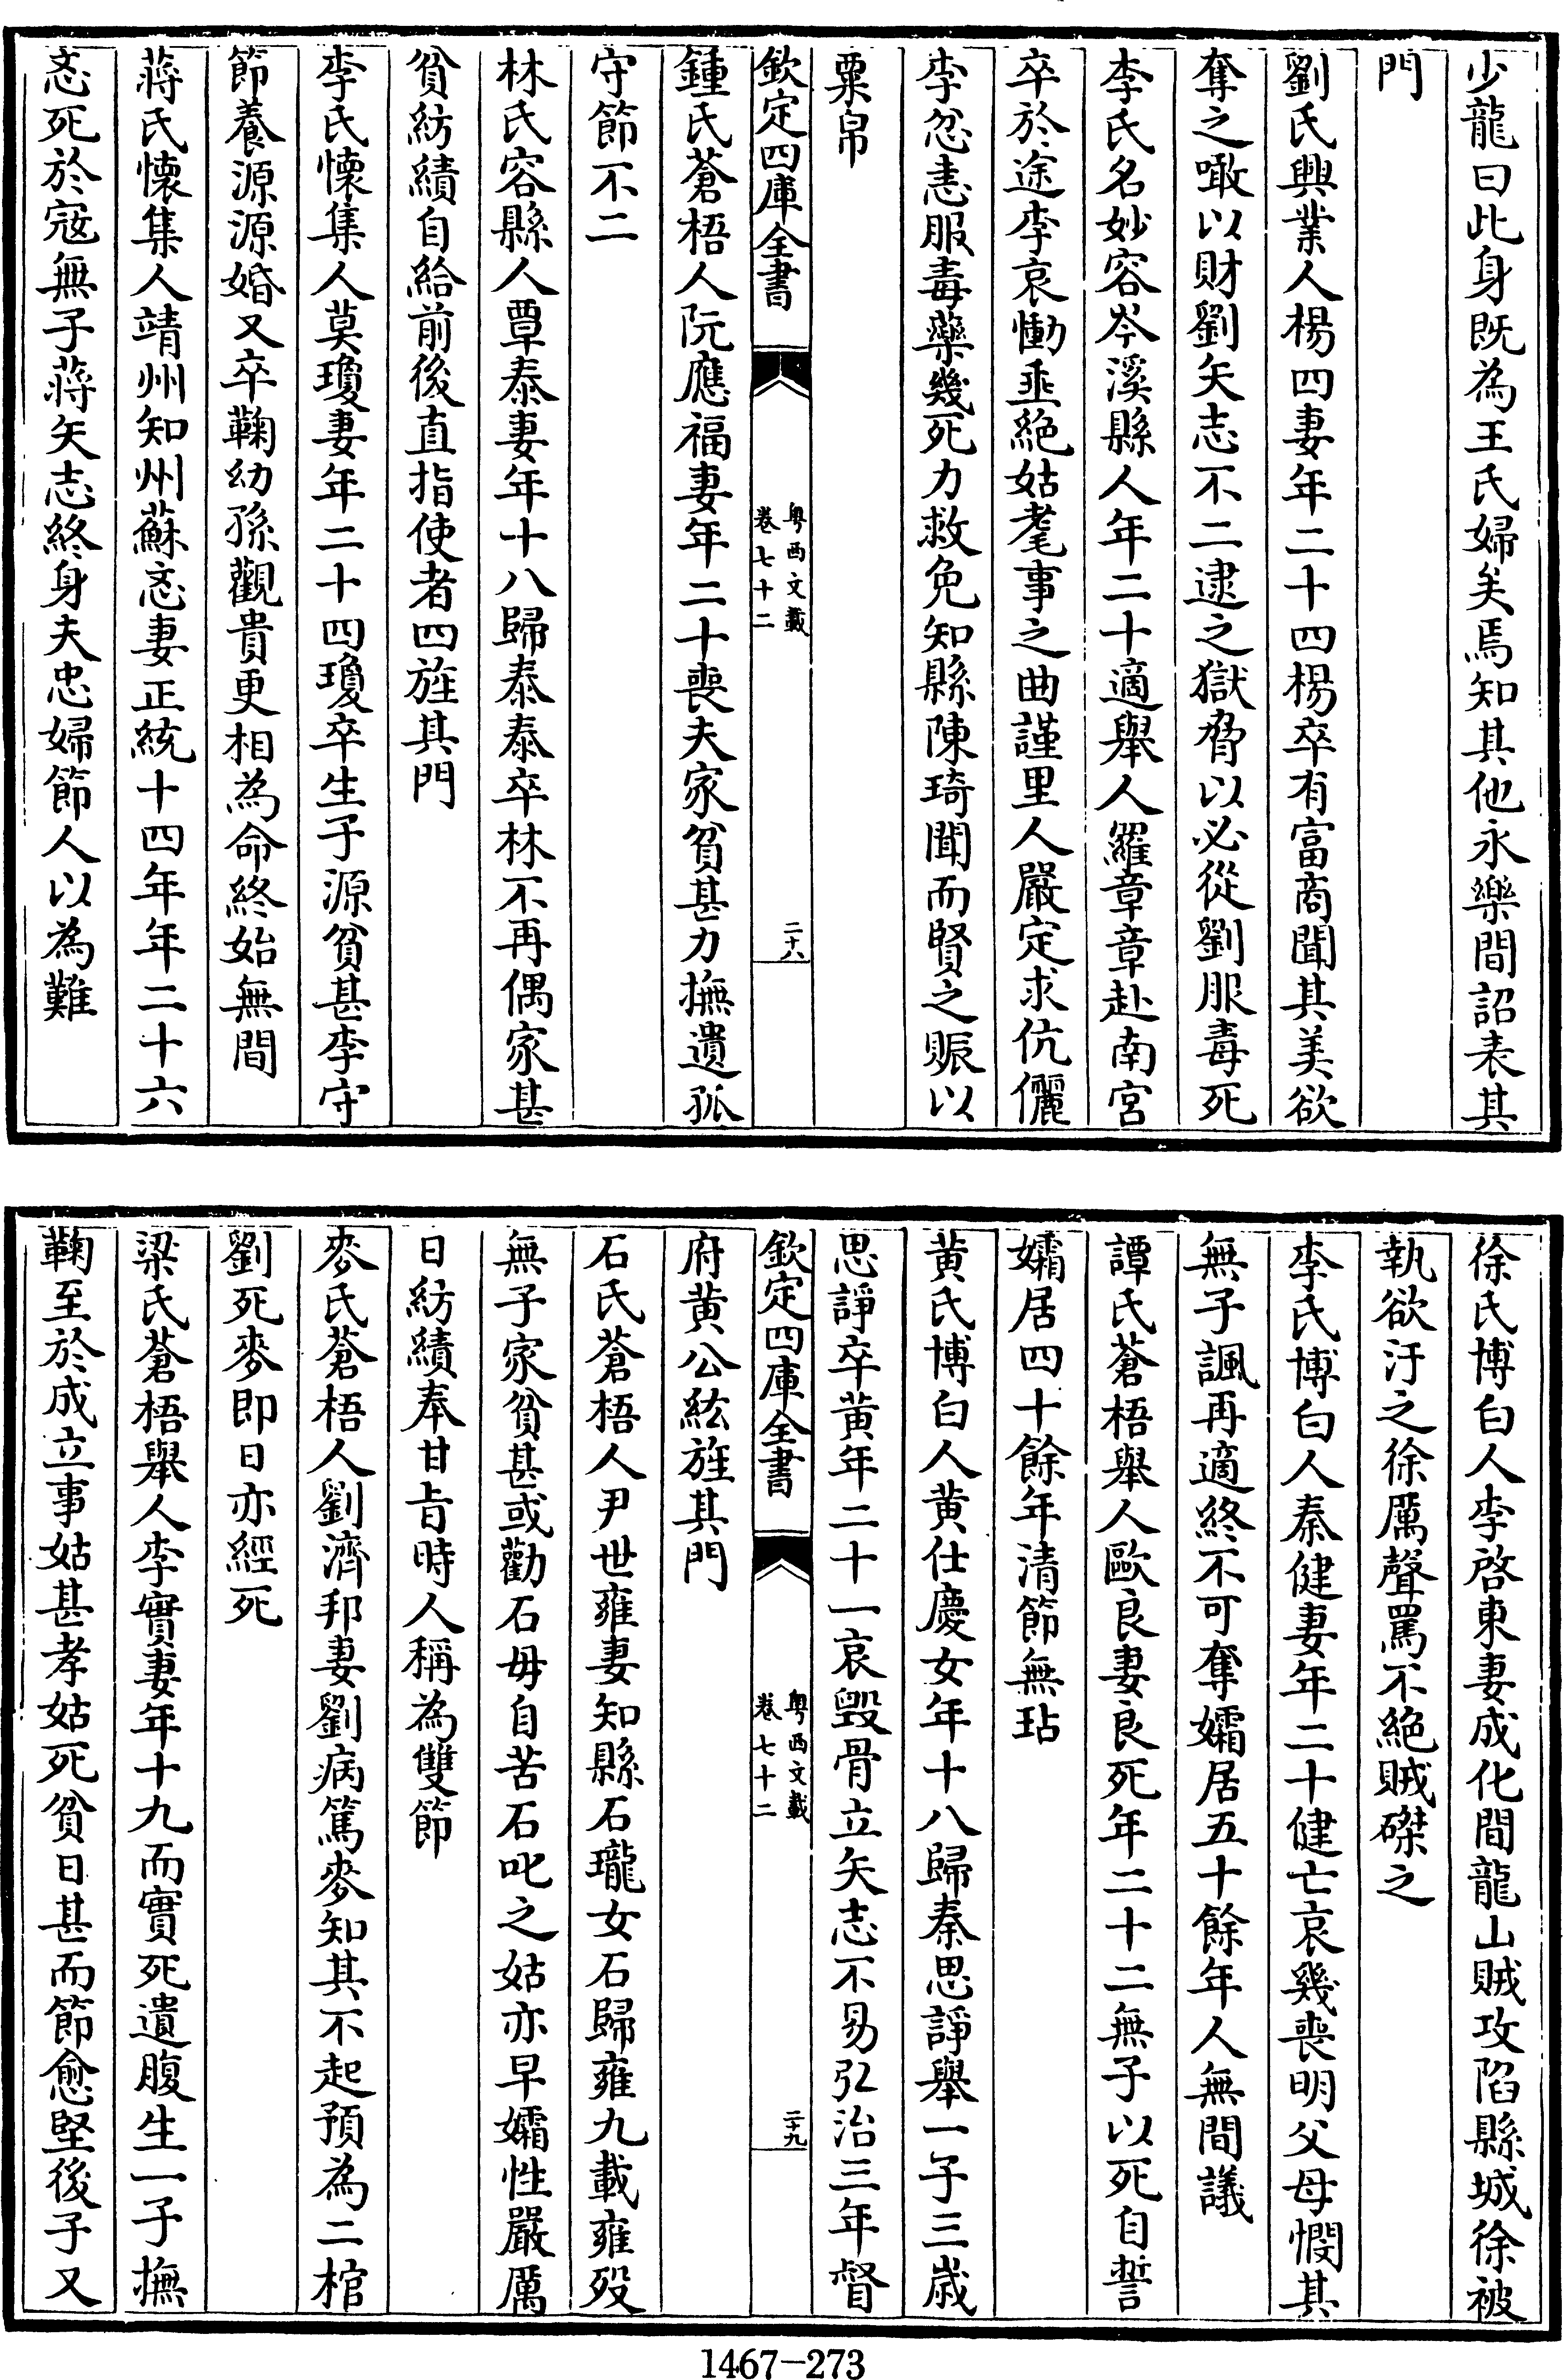 少龍曰此身既為王氏婦矣焉知其他永樂間詔表其
門
劉氏興業人楊四妻年二十四楊卒有富商聞其美欲
奪之噉以財劉矢志不二逮之獄脅以必從劉服毒死
李氏名妙容岑溪縣人年二十適舉人羅章章赴南宮
卒於途李哀慟垂絕姑耄事之曲謹里人嚴定求伉儷
李忿恚服毒藥幾死力救免知縣陳琦聞而賢之賑以
粟帛
欽定四庫全書
粵西文載
卷七十二
二十八
鍾氏蒼梧人阮應福妻年二十喪夫家貧甚力撫遺孤
守節不二
林氏容縣人覃泰妻年十八歸泰泰卒林不再偶家甚
貧紡績自給前後直指使者四旌其門
李氏懷集人莫瓊妻年二十四瓊卒生子源貧甚李守
節養源源婚又卒鞠幼孫觀貴更相為命終始無間
蔣氏懷集人靖州知州蘇忞妻正統十四年年二十六
忞死於寇無子蔣矢志終身夫忠婦節人以為難
徐氏博白人李啓東妻成化間龍山賊攻陷縣城徐被
執欲汙之徐厲聲罵不絕賊磔之
李氏博白人秦健妻年二十健亡哀幾喪明父母憫其
無子諷再適終不可奪孀居五十餘年人無間議
譚氏蒼梧舉人歐良妻良死年二十二無子以死自誓
孀居四十餘年清節無玷
黃氏博白人黃仕慶女年十八歸秦思諍舉一子三歲
思諍卒黃年二十一哀毀骨立矢志不易弘治三年督
欽定四庫全書
粵西文載
卷七十二
二十九
府黃公紘旌其門
石氏蒼梧人尹世雍妻知縣石瓏女石歸雍九載雍歿
無子家貧甚或勸石毋自苦石叱之姑亦早孀性嚴厲
日紡績奉甘旨時人稱為雙節
麥氏蒼梧人劉濟邦妻劉病篤麥知其不起預為二棺
劉死麥即日亦經死
梁氏蒼梧舉人李實妻年十九而實死遺腹生一子撫
鞠至於成立事姑甚孝姑死貧日甚而節愈堅後子又
1467-273